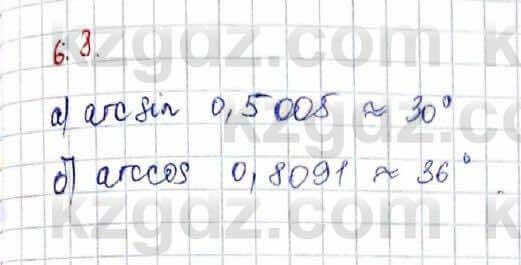 6.3.
а) arcsin 0,5005 ≈ 30°
б) arccos 0,8091 ≈ 36°
kzgdz.com
kzgdz.com
kzgdz.com